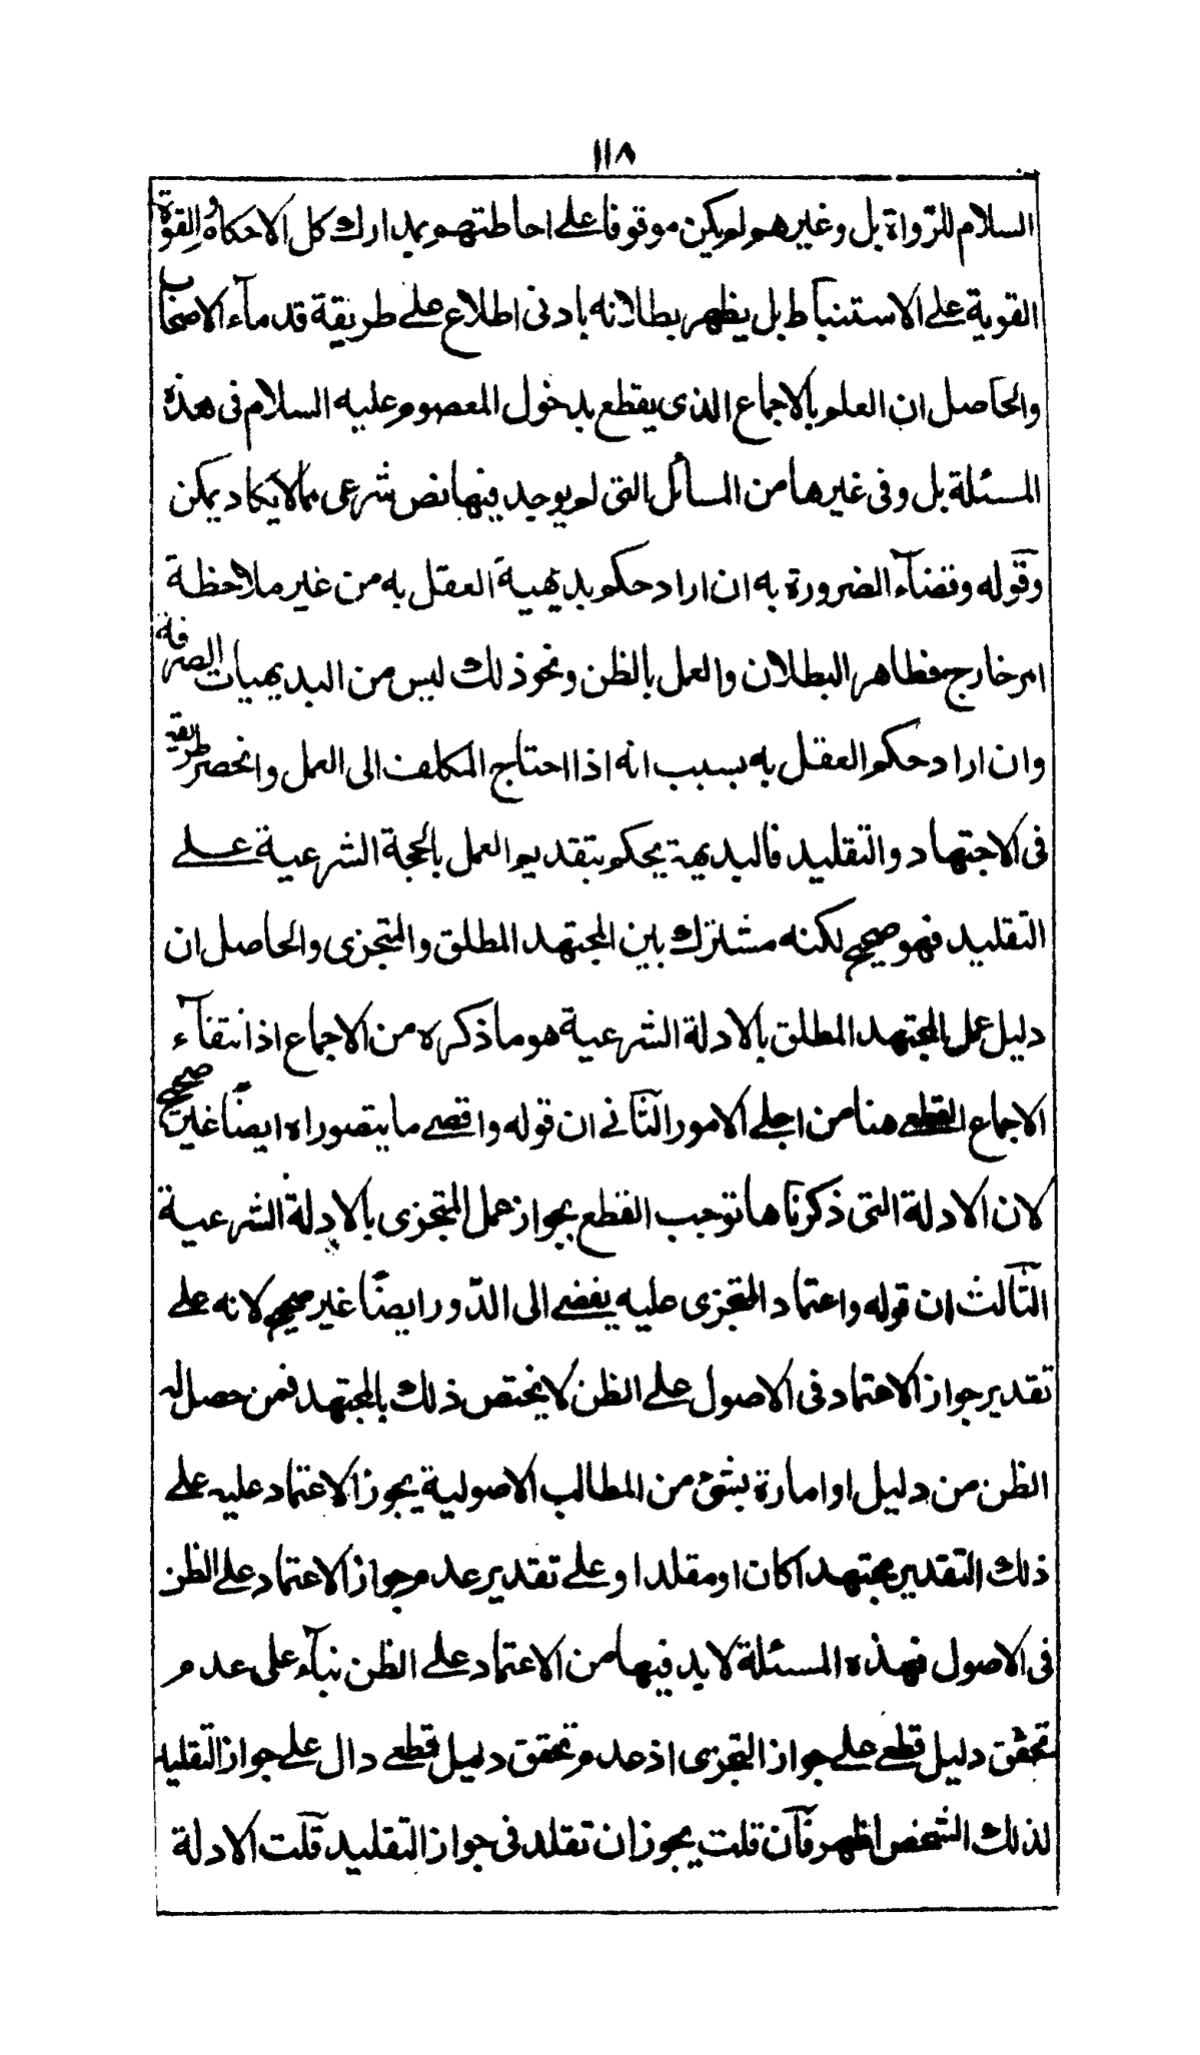 ١١٨
السلام للرّواة بل وغيرهم لم يكن موقوفا على احاطتهم بمدارك كل الاحكام والقوة
القوية على الاستنباط بل يظهر بطلانه بادنى اطلاع على طريقة قدمآء الاصحاب
والحاصل ان العلم بالاجماع الذى يقطع بدخول المعصوم عليه السلام فى هذه
المسئلة بل وفى غيرها من المسائل التى لم يوجد فيها نص شرعى مما لا يكاد يمكن
وقوله وقضآء الضرورة به ان اراد حكم بديهية العقل به من غير ملاحظة
امر خارج فظاهر البطلان والعمل بالظن ونحو ذلك ليس من البديهيات الصرفة
وان اراد حكم العقل به بسبب انه اذا احتاج المكلف الى العمل وانحصر طريقه
فى الاجتهاد والتقليد فالبديهة يحكم بتقديم العمل بالحجة الشرعية على
التقليد فهو صحيح لكنه مشترك بين المجتهد المطلق والمتجزى والحاصل ان
دليل عمل المجتهد المطلق بالادلة الشرعية هو ما ذكره من الاجماع اذ انتفآء
الاجماع القطعى هنا من اجلى الامور الثانى ان قوله واقصى ما يتصوراه ايضًا غير صحيح
لان الادلة التى ذكرناها توجب القطع بجواز عمل المتجزى بالادلة الشرعية
الثالث ان قوله واعتماد المتجزى عليه يفضى الى الدّور ايضًا غير صحيح لانه على
تقدير جواز الاعتماد فى الاصول على الظن لا يختص ذلك بالمجتهد فمن حصل له
الظن من دليل او امارة بشئ من المطالب الاصولية يجوز الاعتماد عليه على
ذلك التقدير مجتهدا كان او مقلدا وعلى تقدير عدم جواز الاعتماد على الظن
فى الاصول فهذه المسئلة لابد فيها من الاعتماد على الظن بنآء على عدم
تحقق دليل قطعى على جواز التجزى اذ عدم تحقق دليل قطعى دال على جواز التقليد
لذلك الشخص اظهر فآن قلت يجوز ان تقلد فى جواز التقليد قلت الادلة